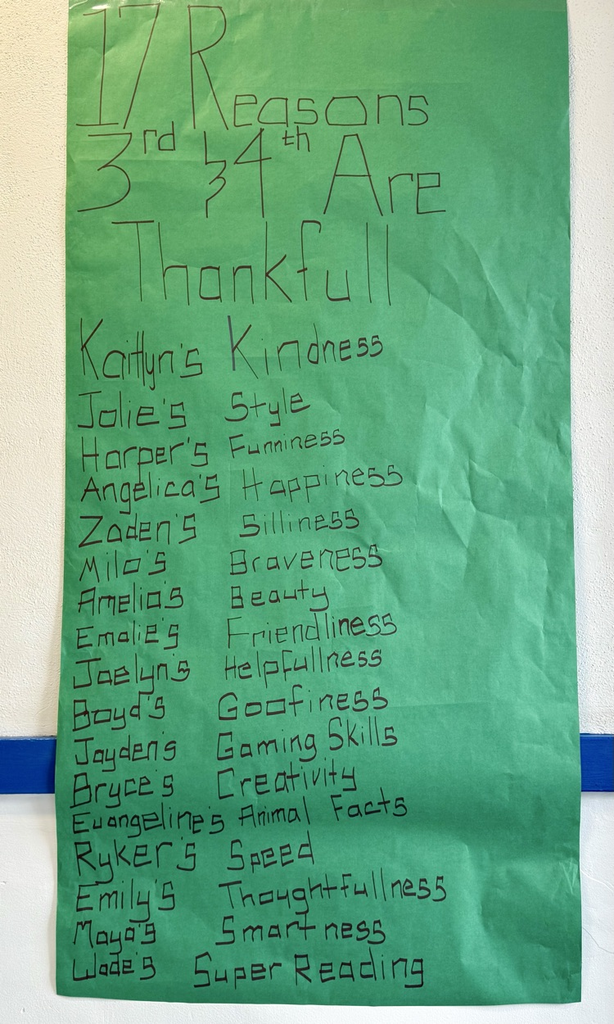 17 Reasons
3rd & 4th Are
Thankfull
Kaitlyn's Kindness
Jolie's Style
Harper's Funniness
Angelica's Happiness
Zaden's Silliness
Milo's Braveness
Amelia's Beauty
Emalie's Friendliness
Jaelyn's Helpfullness
Boyd's Goofiness
Jayden's Gaming Skills
Bryce's Creativity
Evangeline's Animal Facts
Ryker's Speed
Emily's Thoughtfullness
Maya's Smartness
Wade's Super Reading